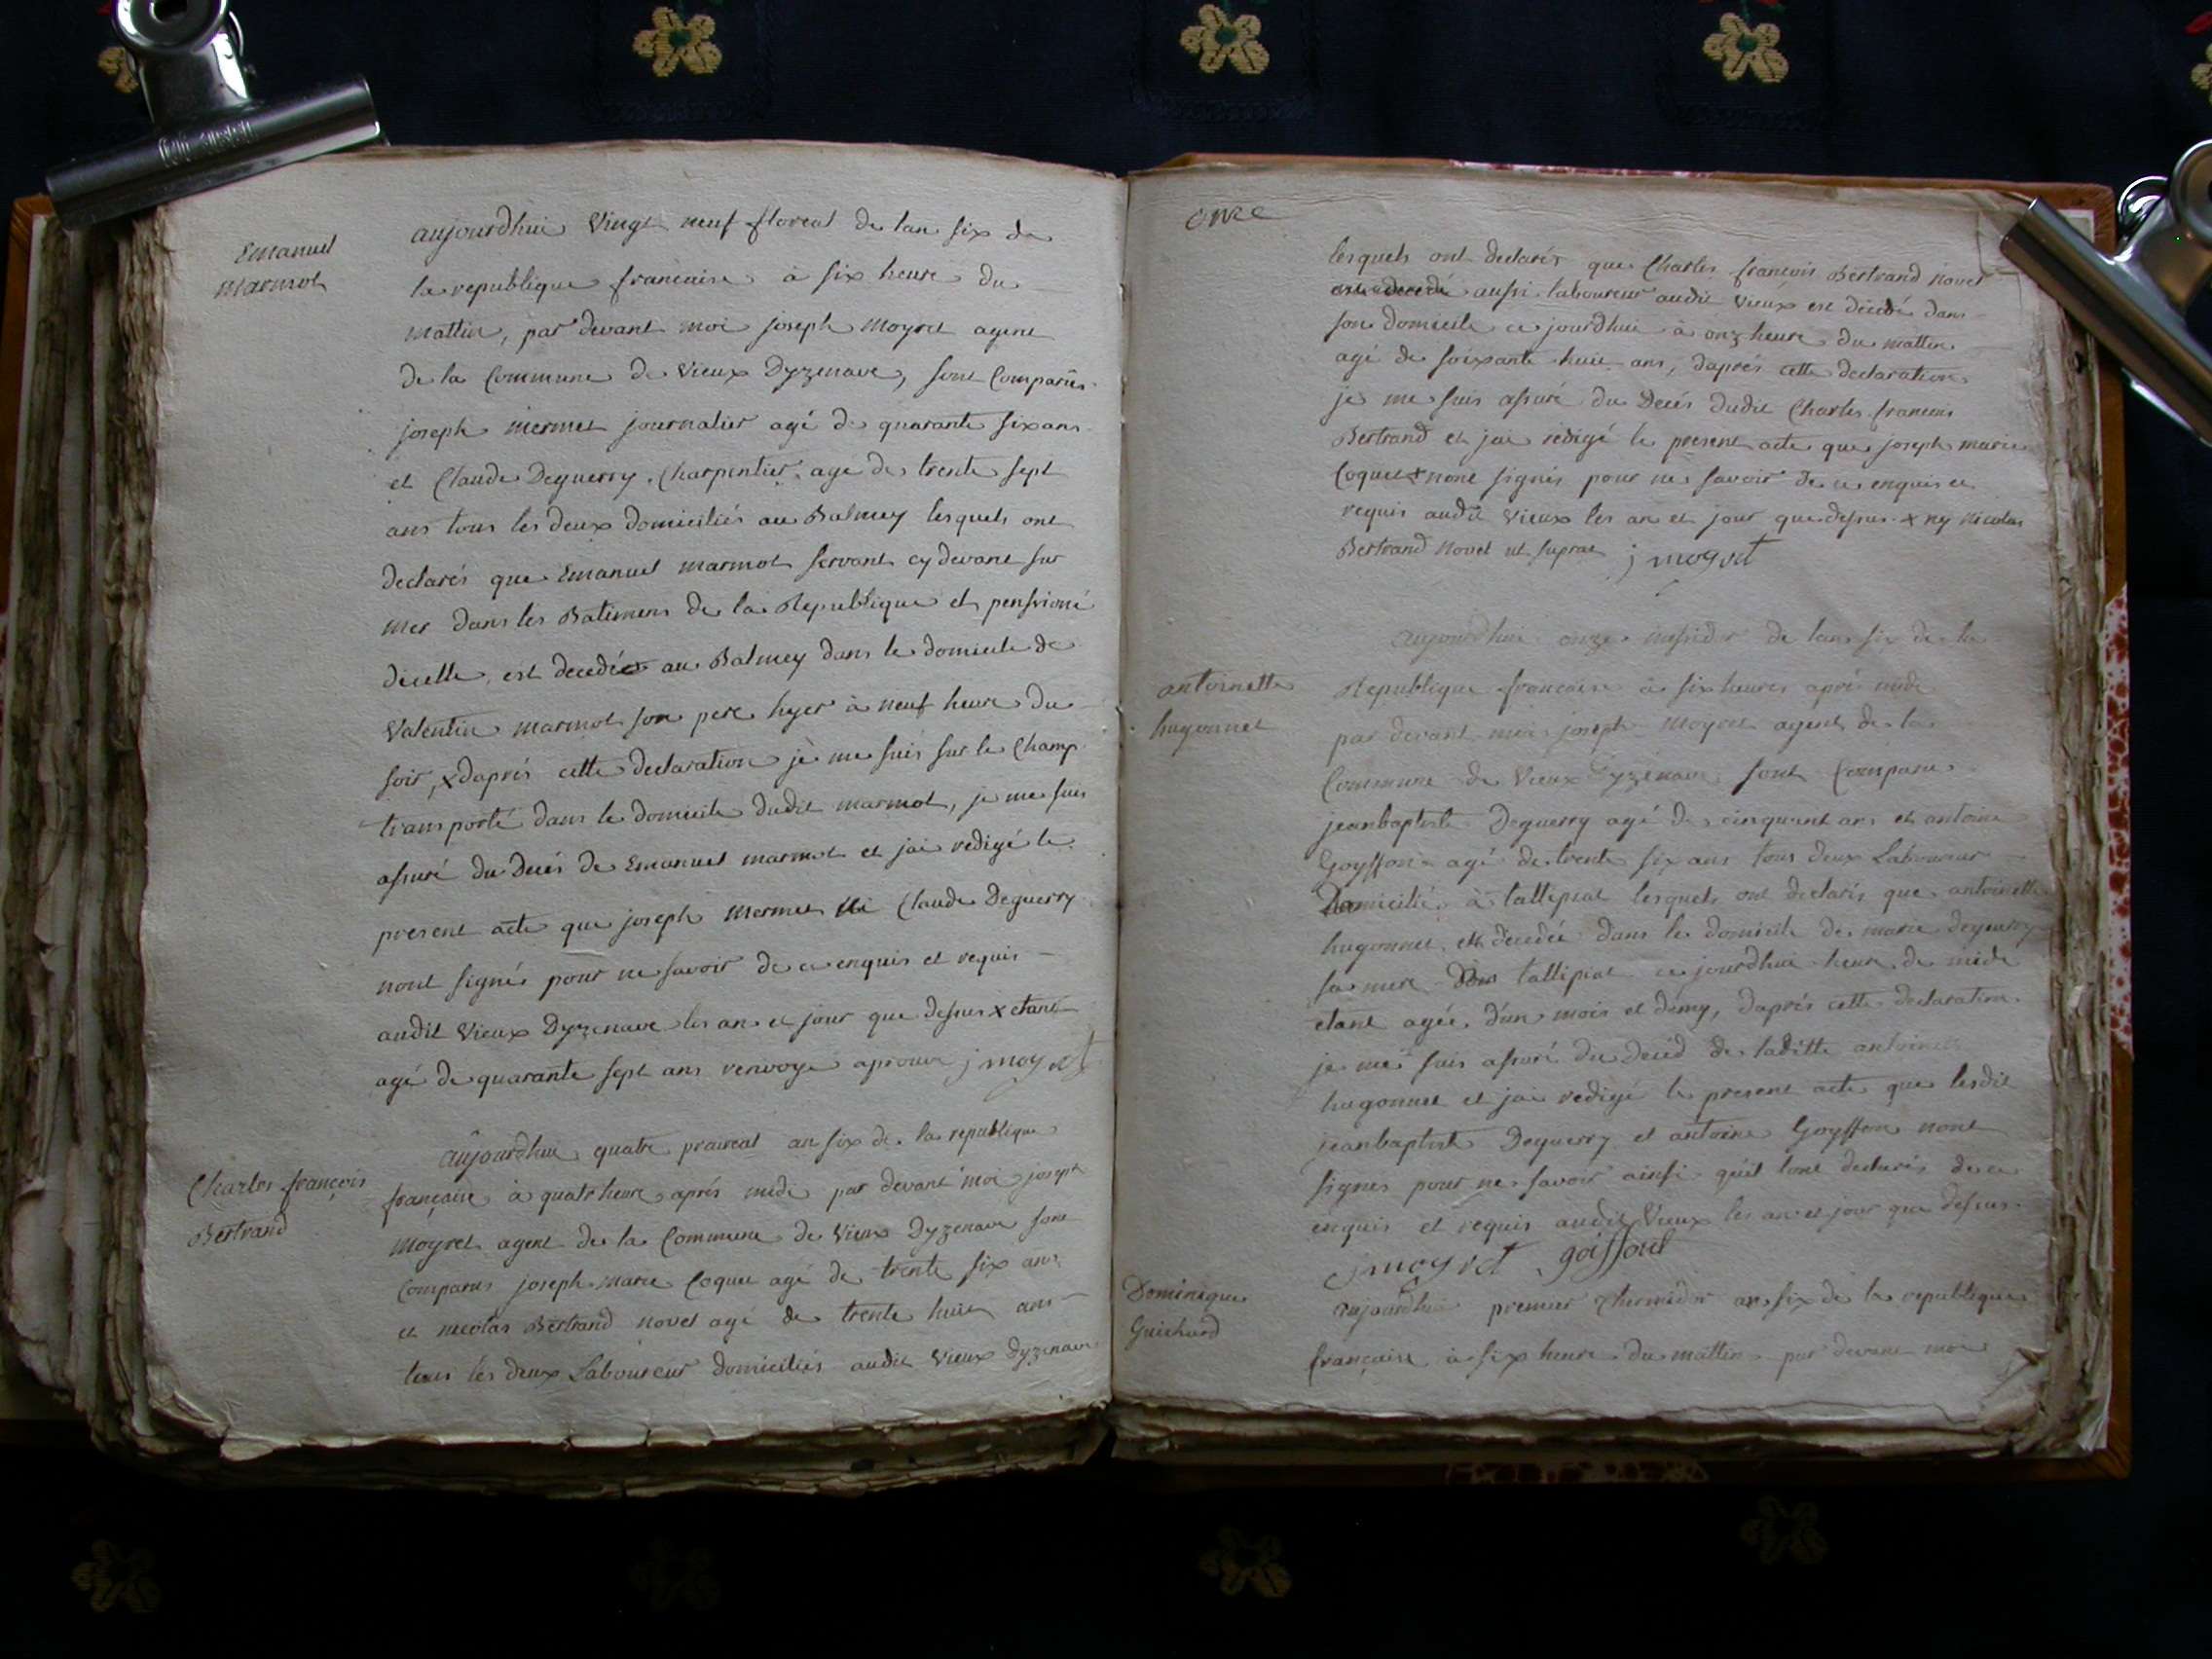 Emanuel
marmot
aujourdhui Vingt neuf floreal de lan six de
la republique francaise à six heure du
mattin, par devant moi joseph moyret agent
de la Commune de Vieux Dyzenave, sont Comparus
joseph mermet journalier agé de quarante six ans
et Claude Deguerry Charpentier agé de trente sept
ans tous les deux domiciliés au Balmey lesquels ont
declarés que Emanuel marmot servant cy devant sur
mer dans les Batimens de la Republique et pensioné
dicelle est decedé au Balmey dans le domicile de
Valentin marmot son pere hyer à neuf heure du
soir, x daprés cette declaration je me suis sur le Champ
transporté dans le domicile dudit marmot, je me suis
assuré du Decés de Emanuel marmot et jai redigé le
present acte que joseph mermet ni Claude Deguerry
nont signés pour ne savoir de ce enquis et requis
audit Vieux Dyzenave les an et jour que dessus x etant
agé de quarante sept ans renvoye aprouvé j moyret
Charles françois
Bertrand
aujourdhui quatre praireal an six de la republique
française à quatr heure aprés midi par devant moi joseph
moyret agent de la Commune de Vieux Dyzenave sont
Comparus joseph marie Coquet agé de trente six ans
et nicolas Bertrand novet agé de trente huit ans
tous les deux Laboureur domiciliés audit Vieux Dyzenave
onze
lesquels ont declarés que Charles francois Bertrand novet
aussi laboureur audit Vieux est décédé dans
son domicile ce jourdhui à onz heure du mattin
agé de soixante huit ans, daprés cette declaration
je me suis assuré du Decés dudit Charles francois
Bertrand et jai redigé le present acte que joseph marie
Coquet x nont signés pour ne savoir de ce enquis et
requis audit Vieux les an et jour que dessus x ny nicolas
Bertrand novet ut supra j moyret
antoinette
hugonnet
aujourdhui onze messidor de lan six de la
Republique francaise à six heures aprés midi
par devant moi joseph moyret agent de la
Commune de Vieux Dyzenave sont Comparus
jeanbaptiste Deguerry agé de cinquant ans et antoine
Goyffon agé de trente six ans tous deux Laboureur
Domicilié à tallipiat lesquels ont declarés que antoinette
hugonnet est décedée dans le domicile de marie deguerry
sa mere tallipiat ce jourdhui heure de midi
etant agée d'un mois et demy, daprés cette declaration
je me suis assuré du deced de laditte antoinette
hugonnet et jai redigé le present acte que lesdit
jeanbaptiste Deguerry et antoine Goyffon nont
signes pour ne savoir ainsi quil lont declarés de ce
enquis et requis audit Vieux les an et jour que dessus
j moyret goiffond
Dominique
Guichard
aujourdhui premier thermidor an six de la republique
française à six heure du mattin par devant moi